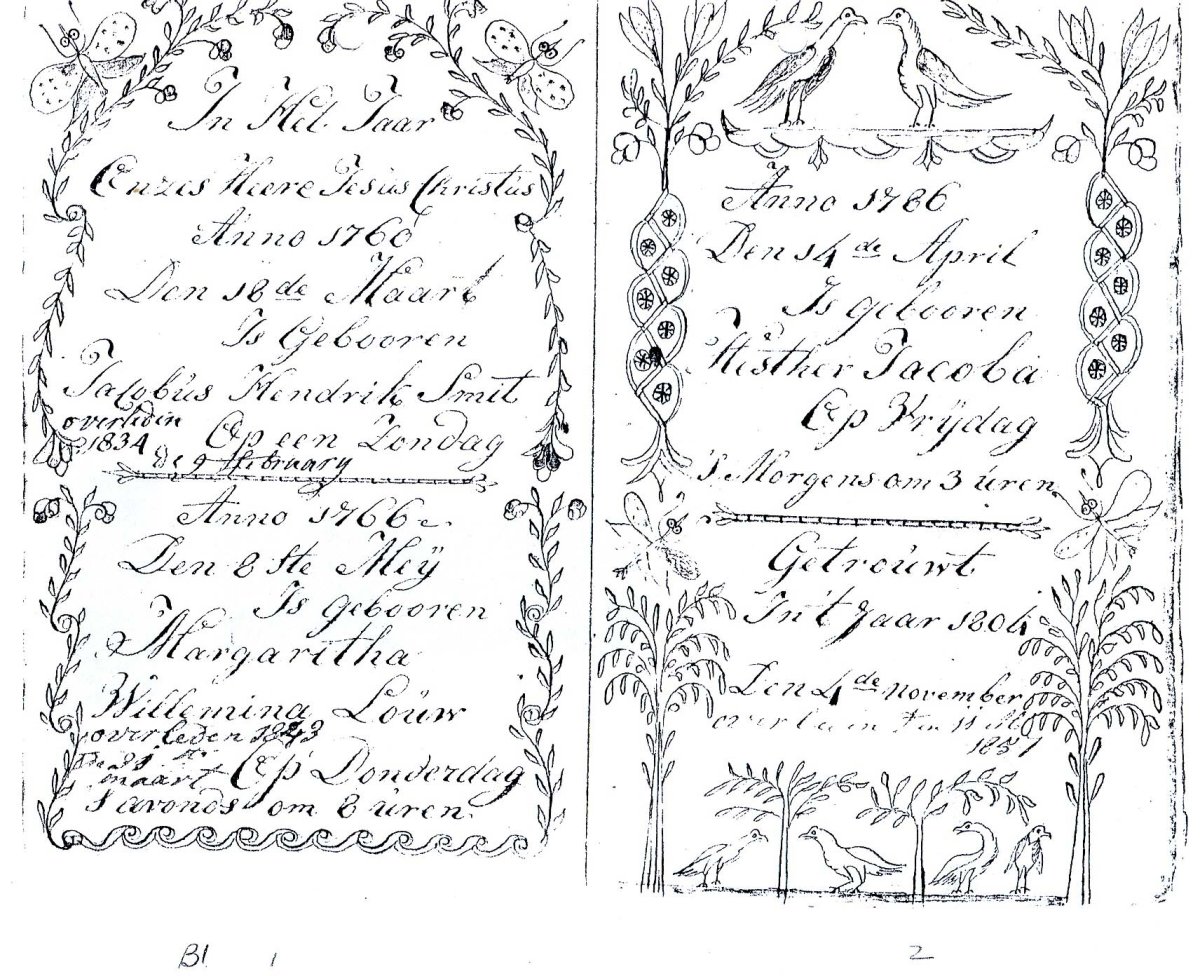 In Het Jaar
Onzes Heere Jesus Christus
Anno 1760
Den 18de Maart
Is Gebooren
Jacobus Hendrik Smit
overleden
1834 Op een Zondag
de 9 February
Anno 1766
Den 8ste Meÿ
Is gebooren
Margaritha
Willemina Louw
overleden 1843
maart Op Donderdag
's avonds om 8 üren
Anno 1786
Den 14de April
Is gebooren
Hesther Jacoba
Op Vrÿdag
's Morgens om 3 üren
Getrouwt
In't Jaar 1804
Den 4de november
overleden den 11
1851
Bl 1
2